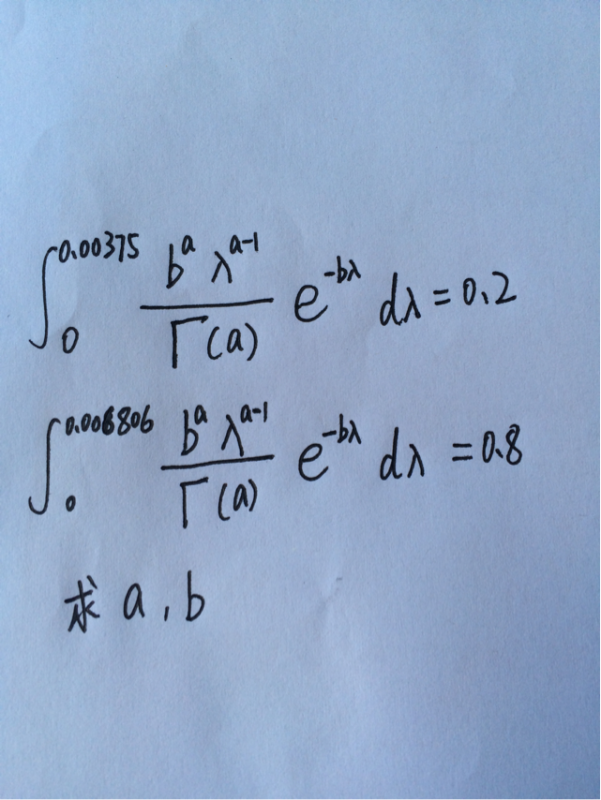 ∫₀^0.00375 (b^a λ^(a-1))/Γ(a) e^(-bλ) dλ = 0.2
∫₀^0.006806 (b^a λ^(a-1))/Γ(a) e^(-bλ) dλ = 0.8
求 a, b